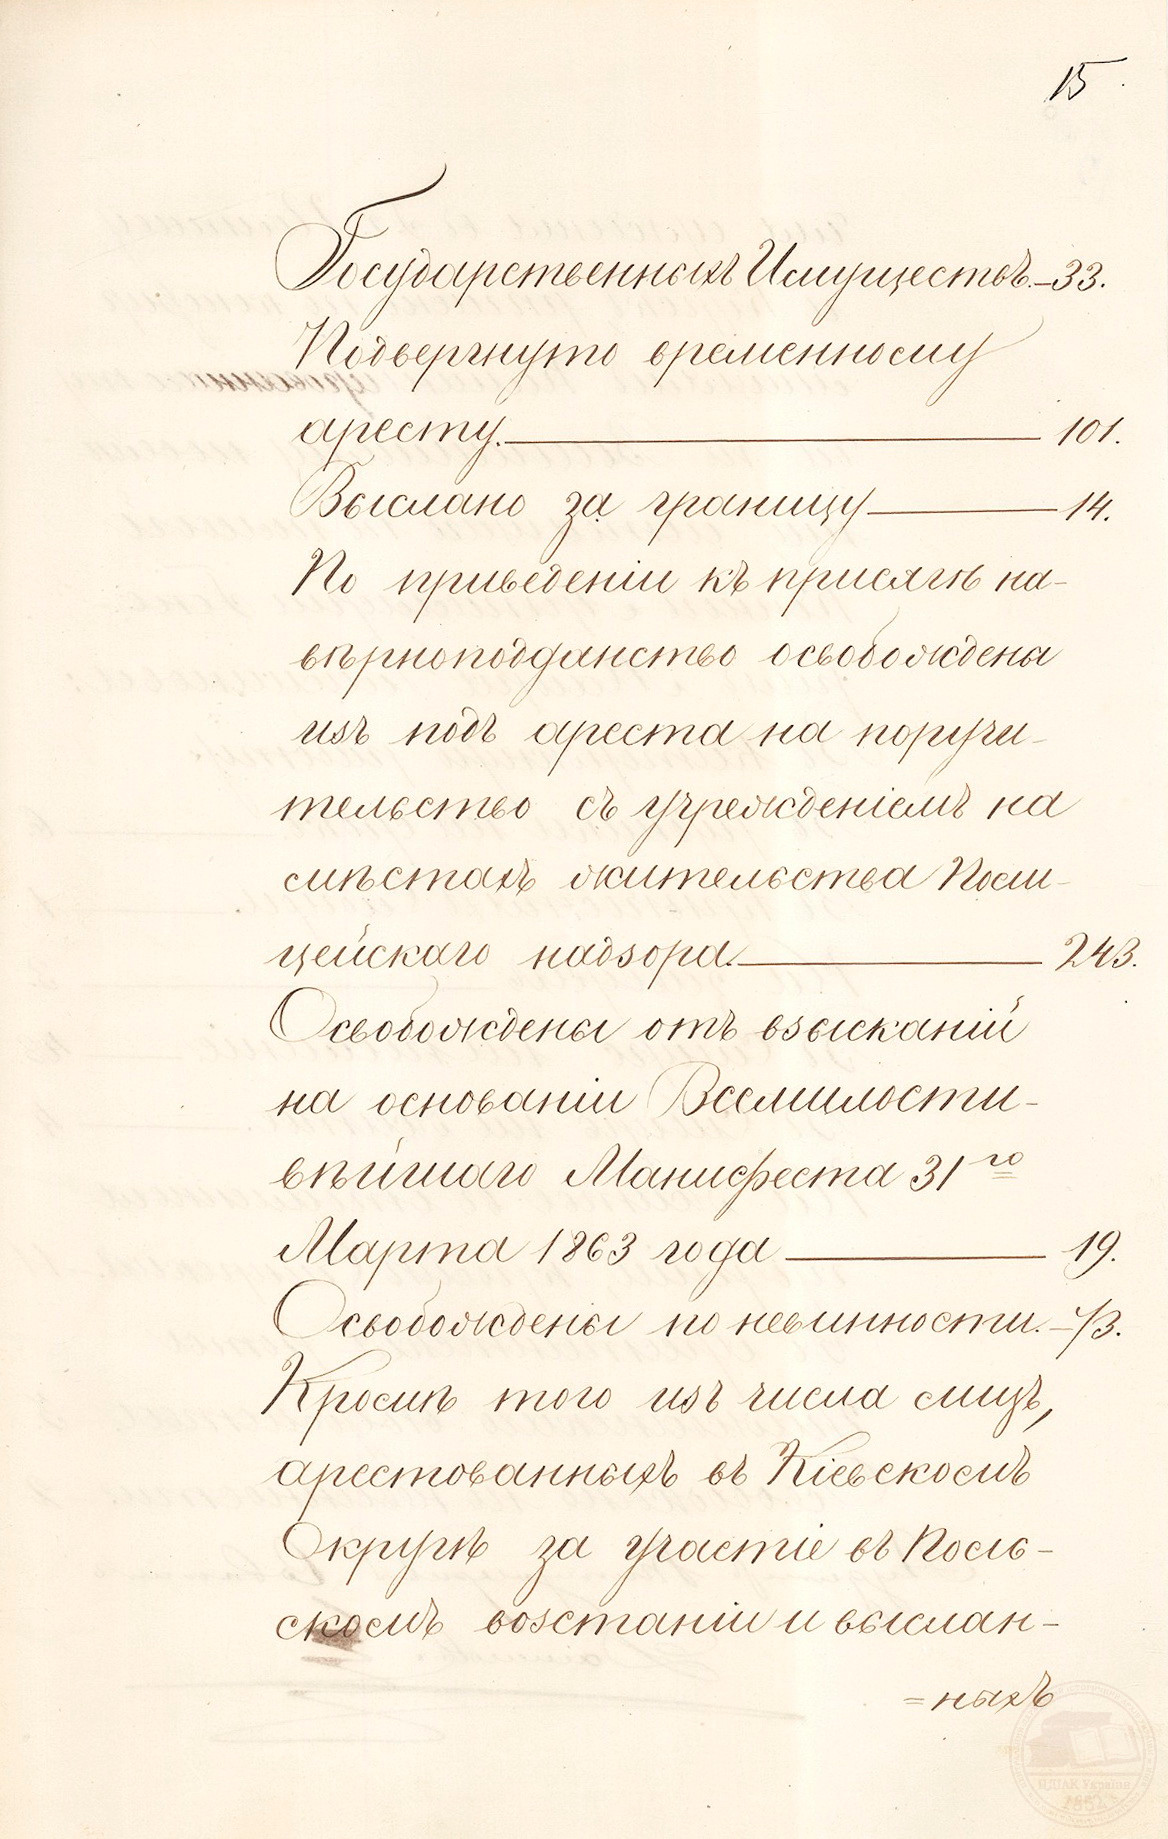 15.
Государственныхъ Имуществъ.—33.
Подвергнуто временному
аресту.—101.
Выслано за границу—14.
По приведеніи къ присягѣ на-
вѣрноподданство освобождены
изъ подъ ареста на поручи-
тельство съ учрежденіемъ на
мѣстахъ жительства Поли-
цейскаго надзора.—243.
Освобождены отъ взысканій
на основаніи Всемилости-
вѣйшаго Манифеста 31го
Марта 1863 года—19.
Освобождены по невинности.—
Кромѣ того изъ числа лицъ,
арестованныхъ въ Кіевскомъ
Округѣ за участіе въ Поль-
скомъ возстаніи и выслан-
=ныхъ
ЦДІАК України
1852